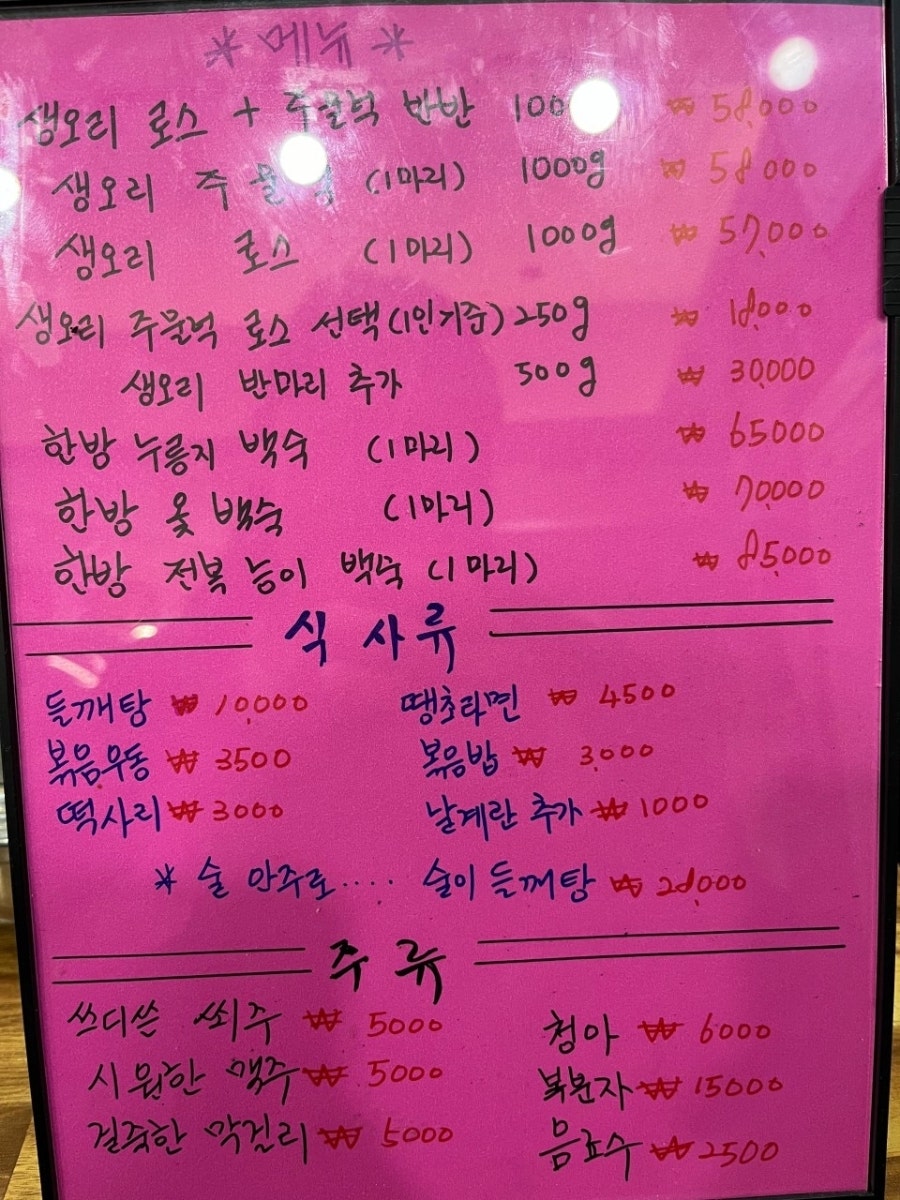 * 메뉴 *
생오리 로스 + 주물럭 반반 100 ₩ 58,000
생오리 주물럭 (1마리) 1000g ₩ 58000
생오리 로스 (1마리) 1000g ₩ 57,000
생오리 주물럭 로스 선택(1인기준) 250g ₩ 18,000
생오리 반마리 추가 500g ₩ 30,000
한방 누룽지 백숙 (1마리) ₩ 65000
한방 옻 백숙 (1마리) ₩ 70,000
한방 전복 능이 백숙 (1마리) ₩ 85,000
식 사류
들깨탕 ₩ 10,000 땡초라면 ₩ 4500
볶음우동 ₩ 3500 볶음밥 ₩ 3,000
떡사리 ₩ 3000 날계란 추가 ₩ 1000
* 술 안주로.... 술이 들깨탕 ₩ 28,000
주 류
쓰디쓴 쐬주 ₩ 5000 청하 ₩ 6000
시원한 맥주 ₩ 5000 복분자 ₩ 15000
걸죽한 막걸리 ₩ 5000 음료수 ₩ 2500